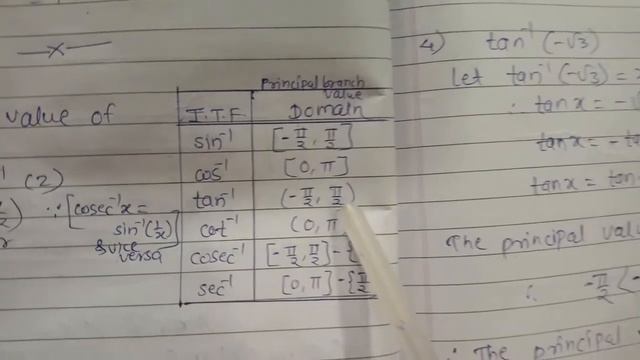 value of
⁻¹(2)
∵ [cosec⁻¹x =
sin⁻¹(1/x)
& vice
versa]
Principal branch
value
I.T.F Domain
sin⁻¹ [-π/2, π/2]
cos⁻¹ [0, π]
tan⁻¹ (-π/2, π/2)
cot⁻¹ (0, π
cosec⁻¹ [-π/2, π/2] - {
sec⁻¹ [0, π] - {π/2
4) tan⁻¹(-√3)
Let tan⁻¹(-√3) =
∴ tan x = -
tan x = - ta
tan x = tan
The principal valu
∴ -π/2 < -
∴ The principal